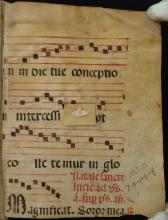 in die tue conceptio
intercess
lle te mur in glo
Natale sancte
lucie ad vs.
a. ips ys. a.
Magnificat. Soror mea